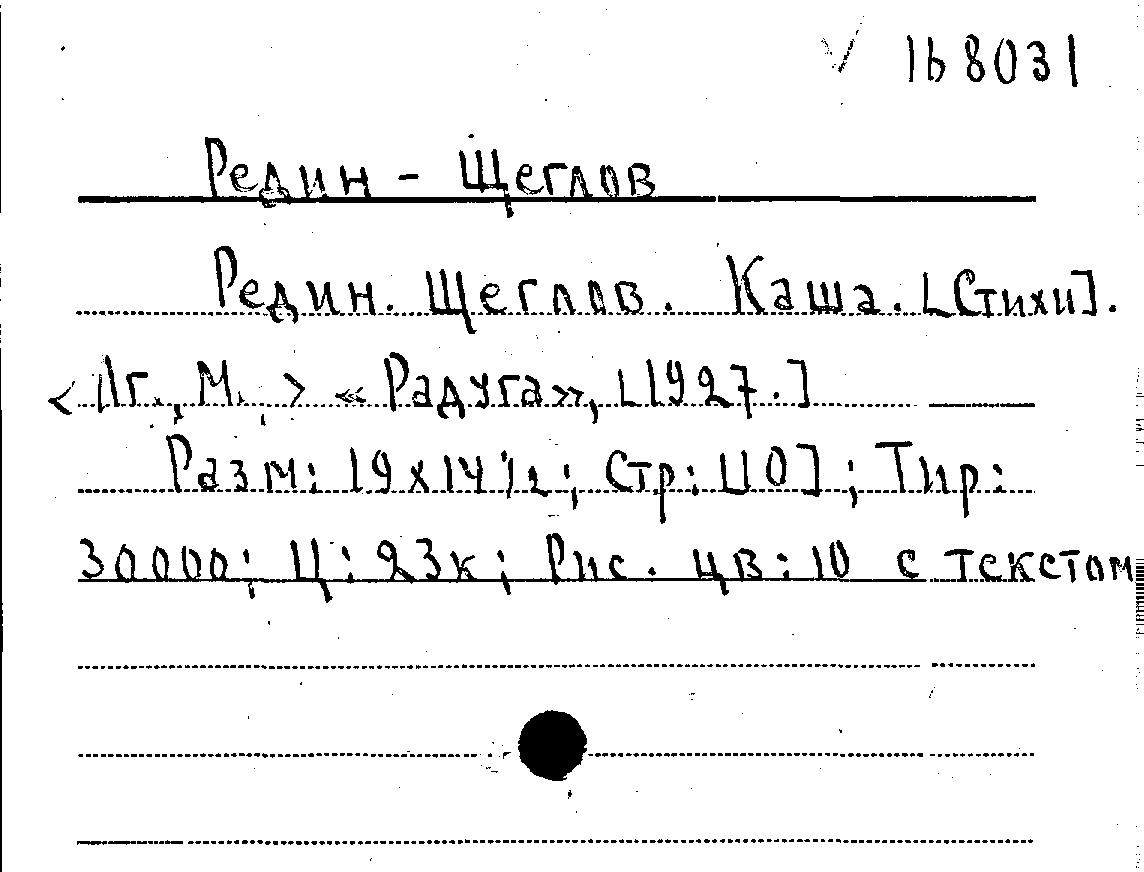 √ 168031
Редин - Щеглов
Редин. Щеглов. Каша. [Стихи].
< Лг., М. > «Радуга», [1927.]
Разм: 19х14½; Стр: [10]; Тир:
30000; Ц: 23к; Рис. цв: 10 с текстом